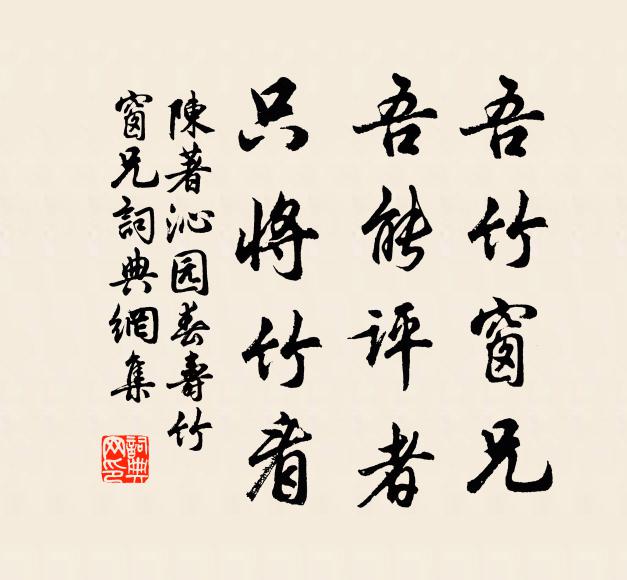 吾竹窗兄
吾能评者
只将竹看
陳著沁园春壽竹
窗兄詞典網集
詞典网印